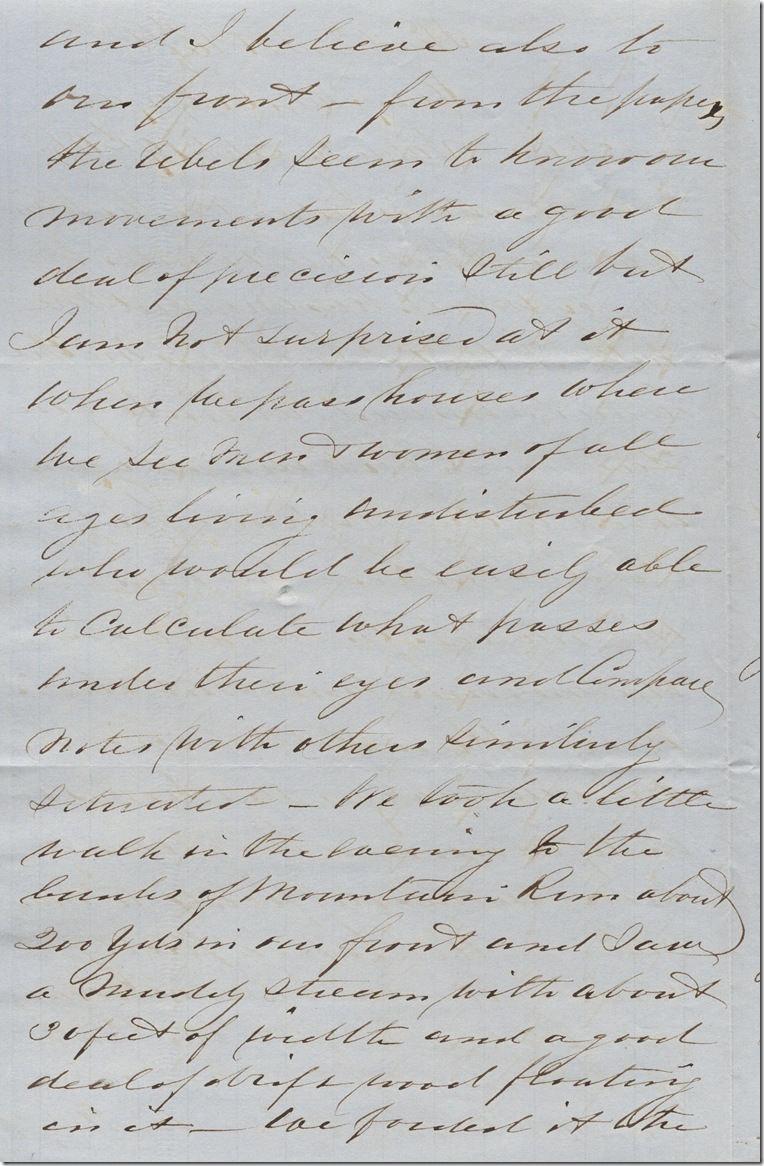 and I believe also to
our front — from the papers,
the Rebels seem to know our
movements with a good
deal of precision still but
I am not surprised at it
when we pass houses where
we see men & women of all
ages living undisturbed
who would be easily able
to Calculate what passes
under their eyes and Compare
notes with others similarly
situated — We took a little
walk in the evening to the
banks of Mountain Run about
200 Yds in our front and saw
a Muddy stream with about
30 feet of width and a good
deal of drift wood floating
in it — We forded it the